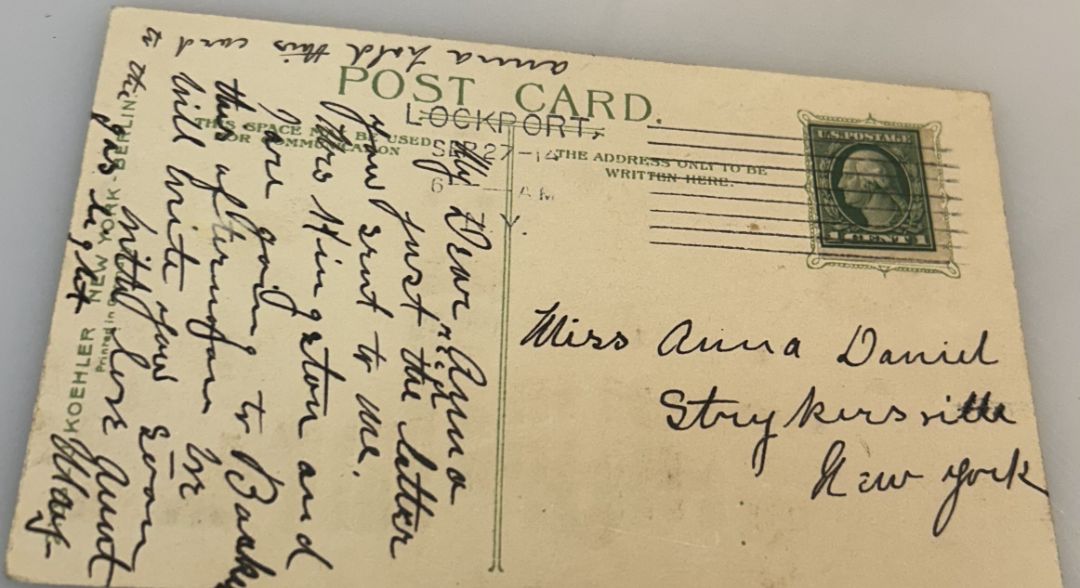 POST CARD.
LOCKPORT,
SEP 27-14
6 AM
THIS SPACE MAY BE USED
FOR COMMUNICATION
THE ADDRESS ONLY TO BE
WRITTEN HERE.
U.S. POSTAGE
1 CENT 1
Miss Anna Daniel
Strykersville
New York
My Dear Anna
just the letter
you sent to me.
Mrs Hingston and
I are going to
this afternoon
will write you soon
with love Aunt
Mary-
anna hold this card to
the gas light
KOEHLER NEW YORK-BERLIN
Printed in